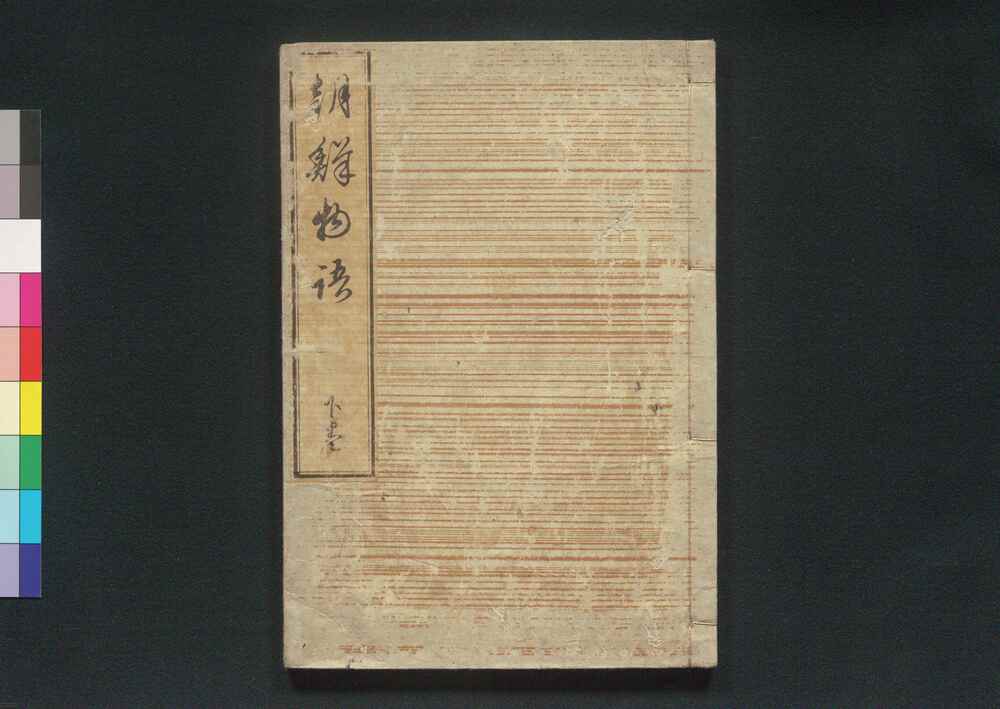 朝鮮物語
下巻